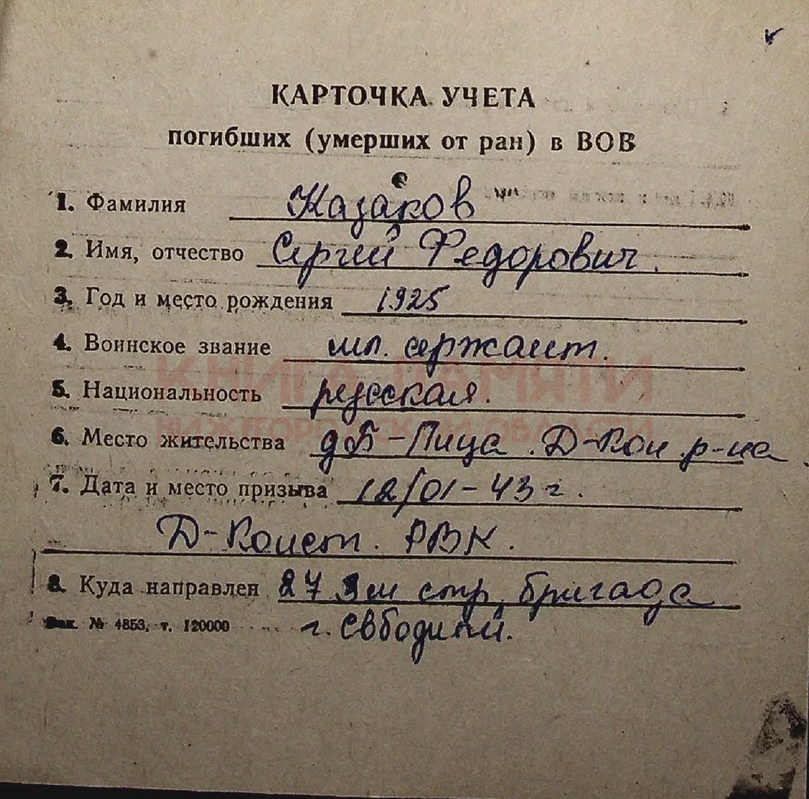 КАРТОЧКА УЧЕТА
погибших (умерших от ран) в ВОВ
1. Фамилия Казаков
2. Имя, отчество Сергей Федорович.
3. Год и место рождения 1925
4. Воинское звание мл. сержант.
5. Национальность русская.
КНИГА ПАМЯТИ
НИЖЕГОРОДСКОЙ ОБЛАСТИ
6. Место жительства д Б-Пица. Д-Кон. р-на
7. Дата и место призыва 12/01-43 г.
Д-Конст. РВК.
8. Куда направлен 27 стр. бригада
Зак. № 4853, т. 120000 г.